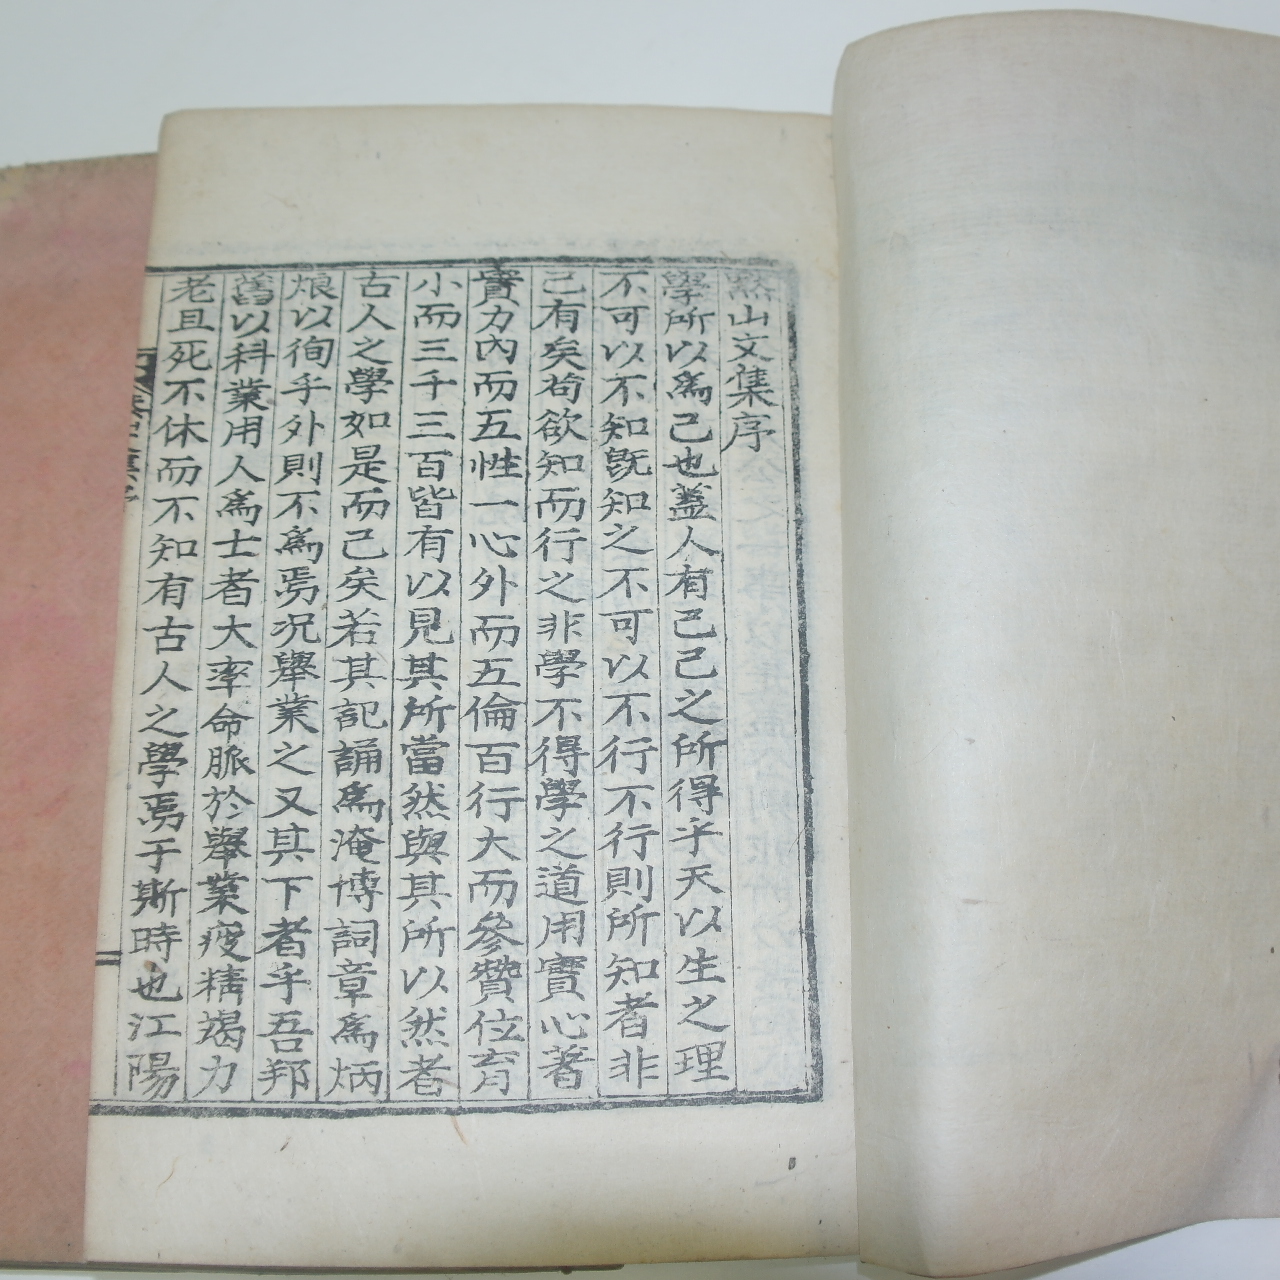 默山文集序
學所以爲己也蓋人有己己之所得乎天以生之理
不可以不知旣知之不可以不行不行則所知者非
己有矣苟欲知而行之非學不得學之道用實心著
實力內而五性一心外而五倫百行大而參贊位育
小而三千三百皆有以見其所當然與其所以然者
古人之學如是而已矣若其記誦爲淹博詞章爲炳
烺以徇乎外則不爲焉况擧業之又其下者乎吾邦
舊以科業用人爲士者大率命脈於擧業疲精竭力
老且死不休而不知有古人之學焉于斯時也江陽